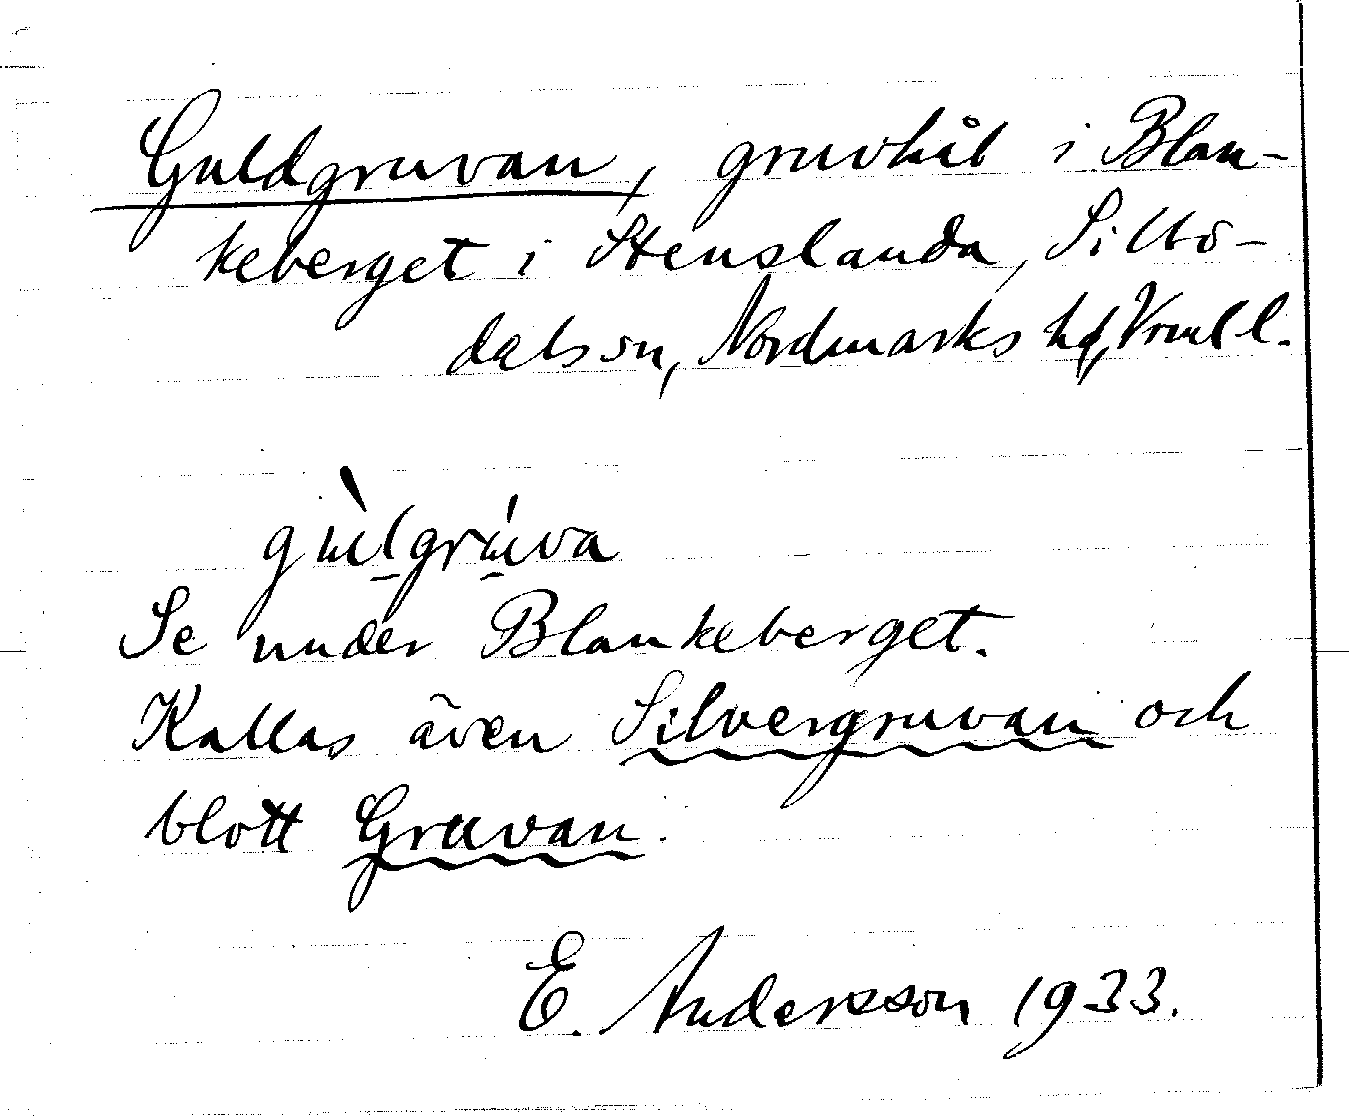 Guldgruvan, gruvhål i Blan-
keberget i Stenslanda, Sillbo-
dals sn, Nordmarks hd, Vrml l.
gùlgrúva
Se under Blankeberget.
Kallas även Silvergruvan och
blott Gruvan.
E. Andersson 1933.